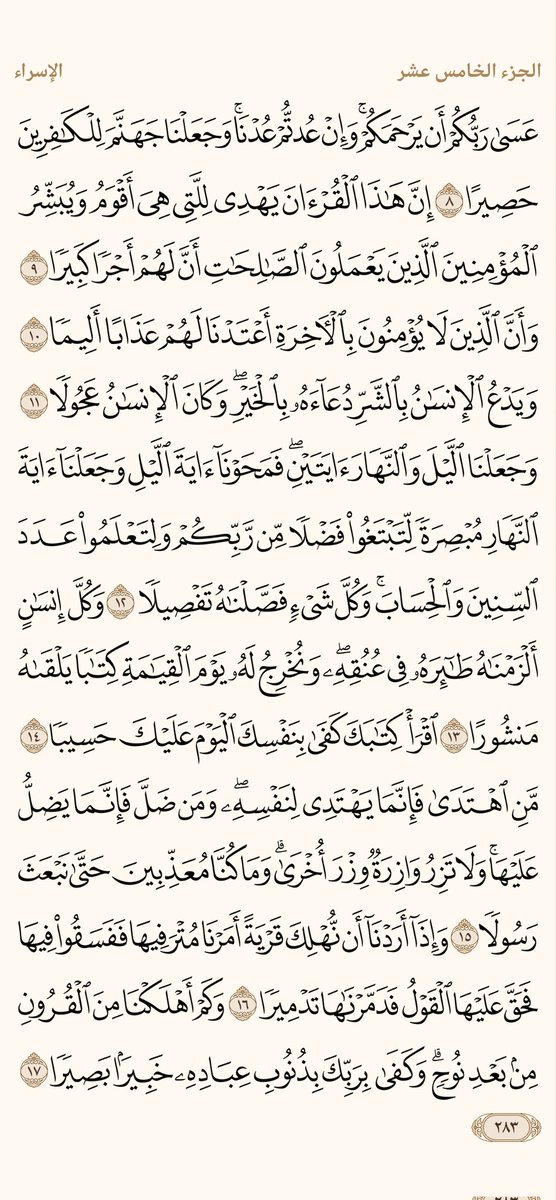 الجزء الخامس عشر
الإسراء
عَسَىٰ رَبُّكُمْ أَن يَرْحَمَكُمْ ۚ وَإِنْ عُدتُّمْ عُدْنَا ۚ وَجَعَلْنَا جَهَنَّمَ لِلْكَٰفِرِينَ
حَصِيرًا ٨ إِنَّ هَٰذَا ٱلْقُرْءَانَ يَهْدِى لِلَّتِى هِىَ أَقْوَمُ وَيُبَشِّرُ
ٱلْمُؤْمِنِينَ ٱلَّذِينَ يَعْمَلُونَ ٱلصَّٰلِحَٰتِ أَنَّ لَهُمْ أَجْرًا كَبِيرًا ٩
وَأَنَّ ٱلَّذِينَ لَا يُؤْمِنُونَ بِٱلْـَٔاخِرَةِ أَعْتَدْنَا لَهُمْ عَذَابًا أَلِيمًا ١٠
وَيَدْعُ ٱلْإِنسَٰنُ بِٱلشَّرِّ دُعَآءَهُۥ بِٱلْخَيْرِ ۖ وَكَانَ ٱلْإِنسَٰنُ عَجُولًا ١١
وَجَعَلْنَا ٱلَّيْلَ وَٱلنَّهَارَ ءَايَتَيْنِ ۖ فَمَحَوْنَآ ءَايَةَ ٱلَّيْلِ وَجَعَلْنَآ ءَايَةَ
ٱلنَّهَارِ مُبْصِرَةً لِّتَبْتَغُوا۟ فَضْلًا مِّن رَّبِّكُمْ وَلِتَعْلَمُوا۟ عَدَدَ
ٱلسِّنِينَ وَٱلْحِسَابَ ۚ وَكُلَّ شَىْءٍ فَصَّلْنَٰهُ تَفْصِيلًا ١٢ وَكُلَّ إِنسَٰنٍ
أَلْزَمْنَٰهُ طَٰٓئِرَهُۥ فِى عُنُقِهِۦ ۖ وَنُخْرِجُ لَهُۥ يَوْمَ ٱلْقِيَٰمَةِ كِتَٰبًا يَلْقَىٰهُ
مَنشُورًا ١٣ ٱقْرَأْ كِتَٰبَكَ كَفَىٰ بِنَفْسِكَ ٱلْيَوْمَ عَلَيْكَ حَسِيبًا ١٤
مَّنِ ٱهْتَدَىٰ فَإِنَّمَا يَهْتَدِى لِنَفْسِهِۦ ۖ وَمَن ضَلَّ فَإِنَّمَا يَضِلُّ
عَلَيْهَا ۚ وَلَا تَزِرُ وَازِرَةٌ وِزْرَ أُخْرَىٰ ۗ وَمَا كُنَّا مُعَذِّبِينَ حَتَّىٰ نَبْعَثَ
رَسُولًا ١٥ وَإِذَآ أَرَدْنَآ أَن نُّهْلِكَ قَرْيَةً أَمَرْنَا مُتْرَفِيهَا فَفَسَقُوا۟ فِيهَا
فَحَقَّ عَلَيْهَا ٱلْقَوْلُ فَدَمَّرْنَٰهَا تَدْمِيرًا ١٦ وَكَمْ أَهْلَكْنَا مِنَ ٱلْقُرُونِ
مِنۢ بَعْدِ نُوحٍ ۗ وَكَفَىٰ بِرَبِّكَ بِذُنُوبِ عِبَادِهِۦ خَبِيرًۢا بَصِيرًا ١٧
٢٨٣